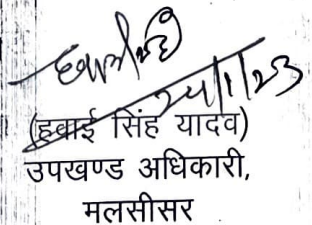 24/1/23
(हवाई सिंह यादव)
उपखण्ड अधिकारी,
मलसीसर